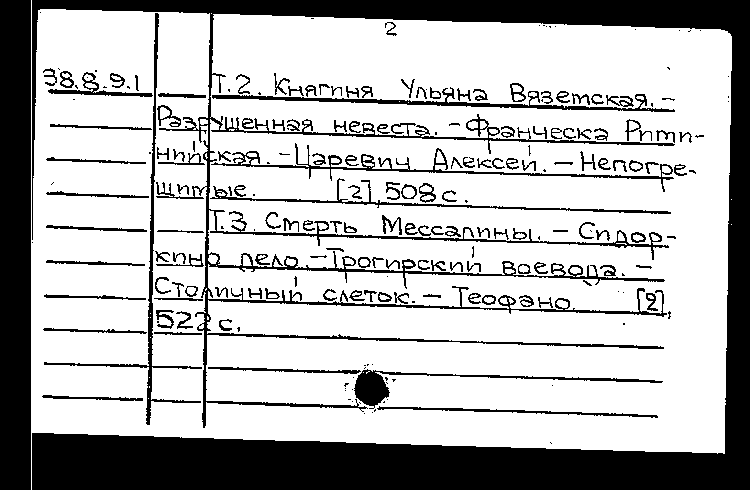 2
38.8.9.1 Т.2. Княгиня Ульяна Вяземская. –
Разрушенная невеста. – Франческа Рими-
нийская. – Царевич Алексей. – Непогре-
шимые. [2], 508 с.
Т.3. Смерть Мессалины. – Сидор-
кино дело. – Трогирский воевода. –
Столичный слеток. – Теофано. [2],
522 с.